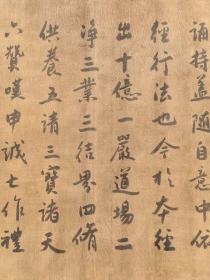 誦持蓋隨自意中依
經行法也今於本經
出十億一嚴道場二
淨三業三結界四脩
供養五請三寶諸天
六贊嘆申誠七作禮